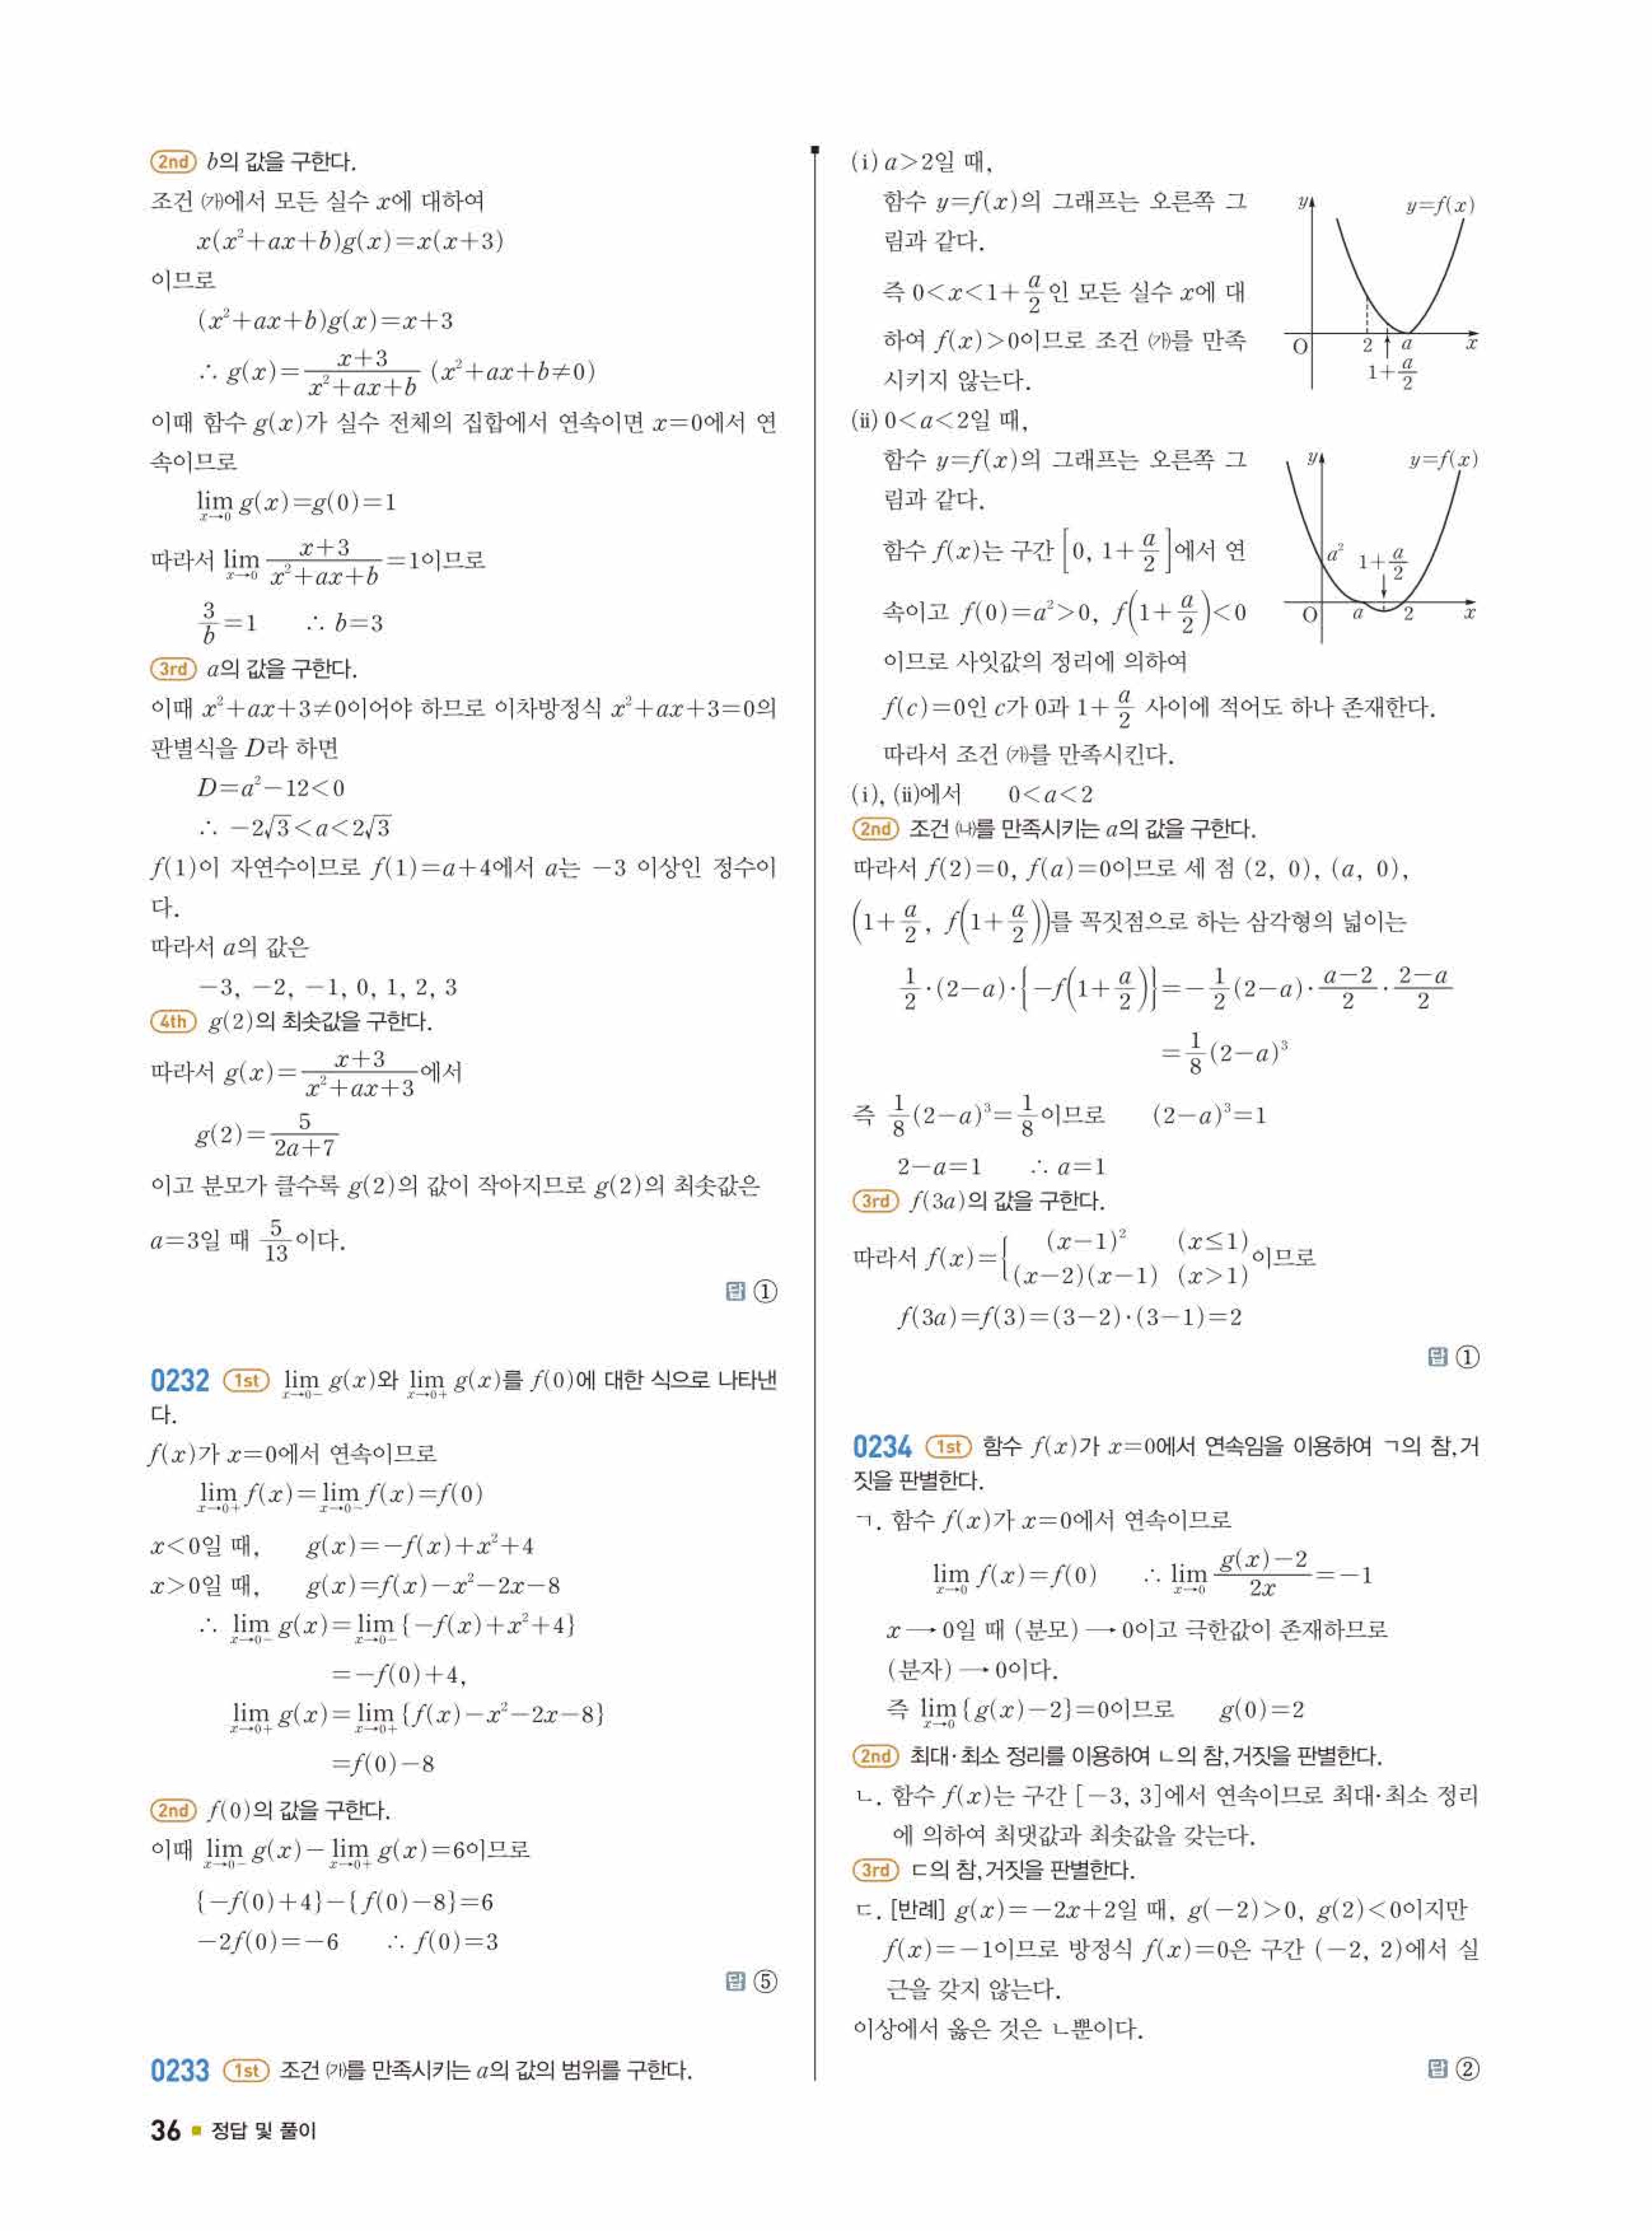 2nd b의 값을 구한다.
조건 ㈎에서 모든 실수 x에 대하여
x(x²+ax+b)g(x)=x(x+3)
이므로
(x²+ax+b)g(x)=x+3
∴ g(x)=\frac{x+3}{x²+ax+b} (x²+ax+b≠0)
이때 함수 g(x)가 실수 전체의 집합에서 연속이면 x=0에서 연
속이므로
lim_{x→0} g(x)=g(0)=1
따라서 lim_{x→0} \frac{x+3}{x²+ax+b}=1이므로
\frac{3}{b}=1 ∴ b=3
3rd a의 값을 구한다.
이때 x²+ax+3≠0이어야 하므로 이차방정식 x²+ax+3=0의
판별식을 D라 하면
D=a²-12<0
∴ -2√3<a<2√3
f(1)이 자연수이므로 f(1)=a+4에서 a는 -3 이상인 정수이
다.
따라서 a의 값은
-3, -2, -1, 0, 1, 2, 3
4th g(2)의 최솟값을 구한다.
따라서 g(x)=\frac{x+3}{x²+ax+3}에서
g(2)=\frac{5}{2a+7}
이고 분모가 클수록 g(2)의 값이 작아지므로 g(2)의 최솟값은
a=3일 때 \frac{5}{13}이다.
답 ①
0232 1st lim_{x→0-} g(x)와 lim_{x→0+} g(x)를 f(0)에 대한 식으로 나타낸
다.
f(x)가 x=0에서 연속이므로
lim_{x→0+} f(x)=lim_{x→0-} f(x)=f(0)
x<0일 때, g(x)=-f(x)+x²+4
x>0일 때, g(x)=f(x)-x²-2x-8
∴ lim_{x→0-} g(x)=lim_{x→0-} {-f(x)+x²+4}
=-f(0)+4,
lim_{x→0+} g(x)=lim_{x→0+} {f(x)-x²-2x-8}
=f(0)-8
2nd f(0)의 값을 구한다.
이때 lim_{x→0-} g(x)-lim_{x→0+} g(x)=6이므로
{-f(0)+4}-{f(0)-8}=6
-2f(0)=-6 ∴ f(0)=3
답 ⑤
0233 1st 조건 ㈎를 만족시키는 a의 값의 범위를 구한다.
(ⅰ) a>2일 때,
함수 y=f(x)의 그래프는 오른쪽 그
림과 같다.
즉 0<x<1+\frac{a}{2}인 모든 실수 x에 대
하여 f(x)>0이므로 조건 ㈎를 만족
시키지 않는다.
y
y=f(x)
O
2
a
x
1+\frac{a}{2}
(ⅱ) 0<a<2일 때,
함수 y=f(x)의 그래프는 오른쪽 그
림과 같다.
함수 f(x)는 구간 [0, 1+\frac{a}{2}]에서 연
속이고 f(0)=a²>0, f(1+\frac{a}{2})<0
이므로 사잇값의 정리에 의하여
y
y=f(x)
a²
1+\frac{a}{2}
O
a
2
x
f(c)=0인 c가 0과 1+\frac{a}{2} 사이에 적어도 하나 존재한다.
따라서 조건 ㈎를 만족시킨다.
(ⅰ), (ⅱ)에서 0<a<2
2nd 조건 ㈏를 만족시키는 a의 값을 구한다.
따라서 f(2)=0, f(a)=0이므로 세 점 (2, 0), (a, 0),
(1+\frac{a}{2}, f(1+\frac{a}{2}))를 꼭짓점으로 하는 삼각형의 넓이는
\frac{1}{2}·(2-a)·{-f(1+\frac{a}{2})}=-\frac{1}{2}(2-a)·\frac{a-2}{2}·\frac{2-a}{2}
=\frac{1}{8}(2-a)³
즉 \frac{1}{8}(2-a)³=\frac{1}{8}이므로 (2-a)³=1
2-a=1 ∴ a=1
3rd f(3a)의 값을 구한다.
따라서 f(x)={ (x-1)² (x≤1)
(x-2)(x-1) (x>1) 이므로
f(3a)=f(3)=(3-2)·(3-1)=2
답 ①
0234 1st 함수 f(x)가 x=0에서 연속임을 이용하여 ㄱ의 참, 거
짓을 판별한다.
ㄱ. 함수 f(x)가 x=0에서 연속이므로
lim_{x→0} f(x)=f(0) ∴ lim_{x→0} \frac{g(x)-2}{2x}=-1
x → 0일 때 (분모) → 0이고 극한값이 존재하므로
(분자) → 0이다.
즉 lim_{x→0} {g(x)-2}=0이므로 g(0)=2
2nd 최대·최소 정리를 이용하여 ㄴ의 참, 거짓을 판별한다.
ㄴ. 함수 f(x)는 구간 [-3, 3]에서 연속이므로 최대·최소 정리
에 의하여 최댓값과 최솟값을 갖는다.
3rd ㄷ의 참, 거짓을 판별한다.
ㄷ. [반례] g(x)=-2x+2일 때, g(-2)>0, g(2)<0이지만
f(x)=-1이므로 방정식 f(x)=0은 구간 (-2, 2)에서 실
근을 갖지 않는다.
이상에서 옳은 것은 ㄴ뿐이다.
답 ②
36 ■ 정답 및 풀이